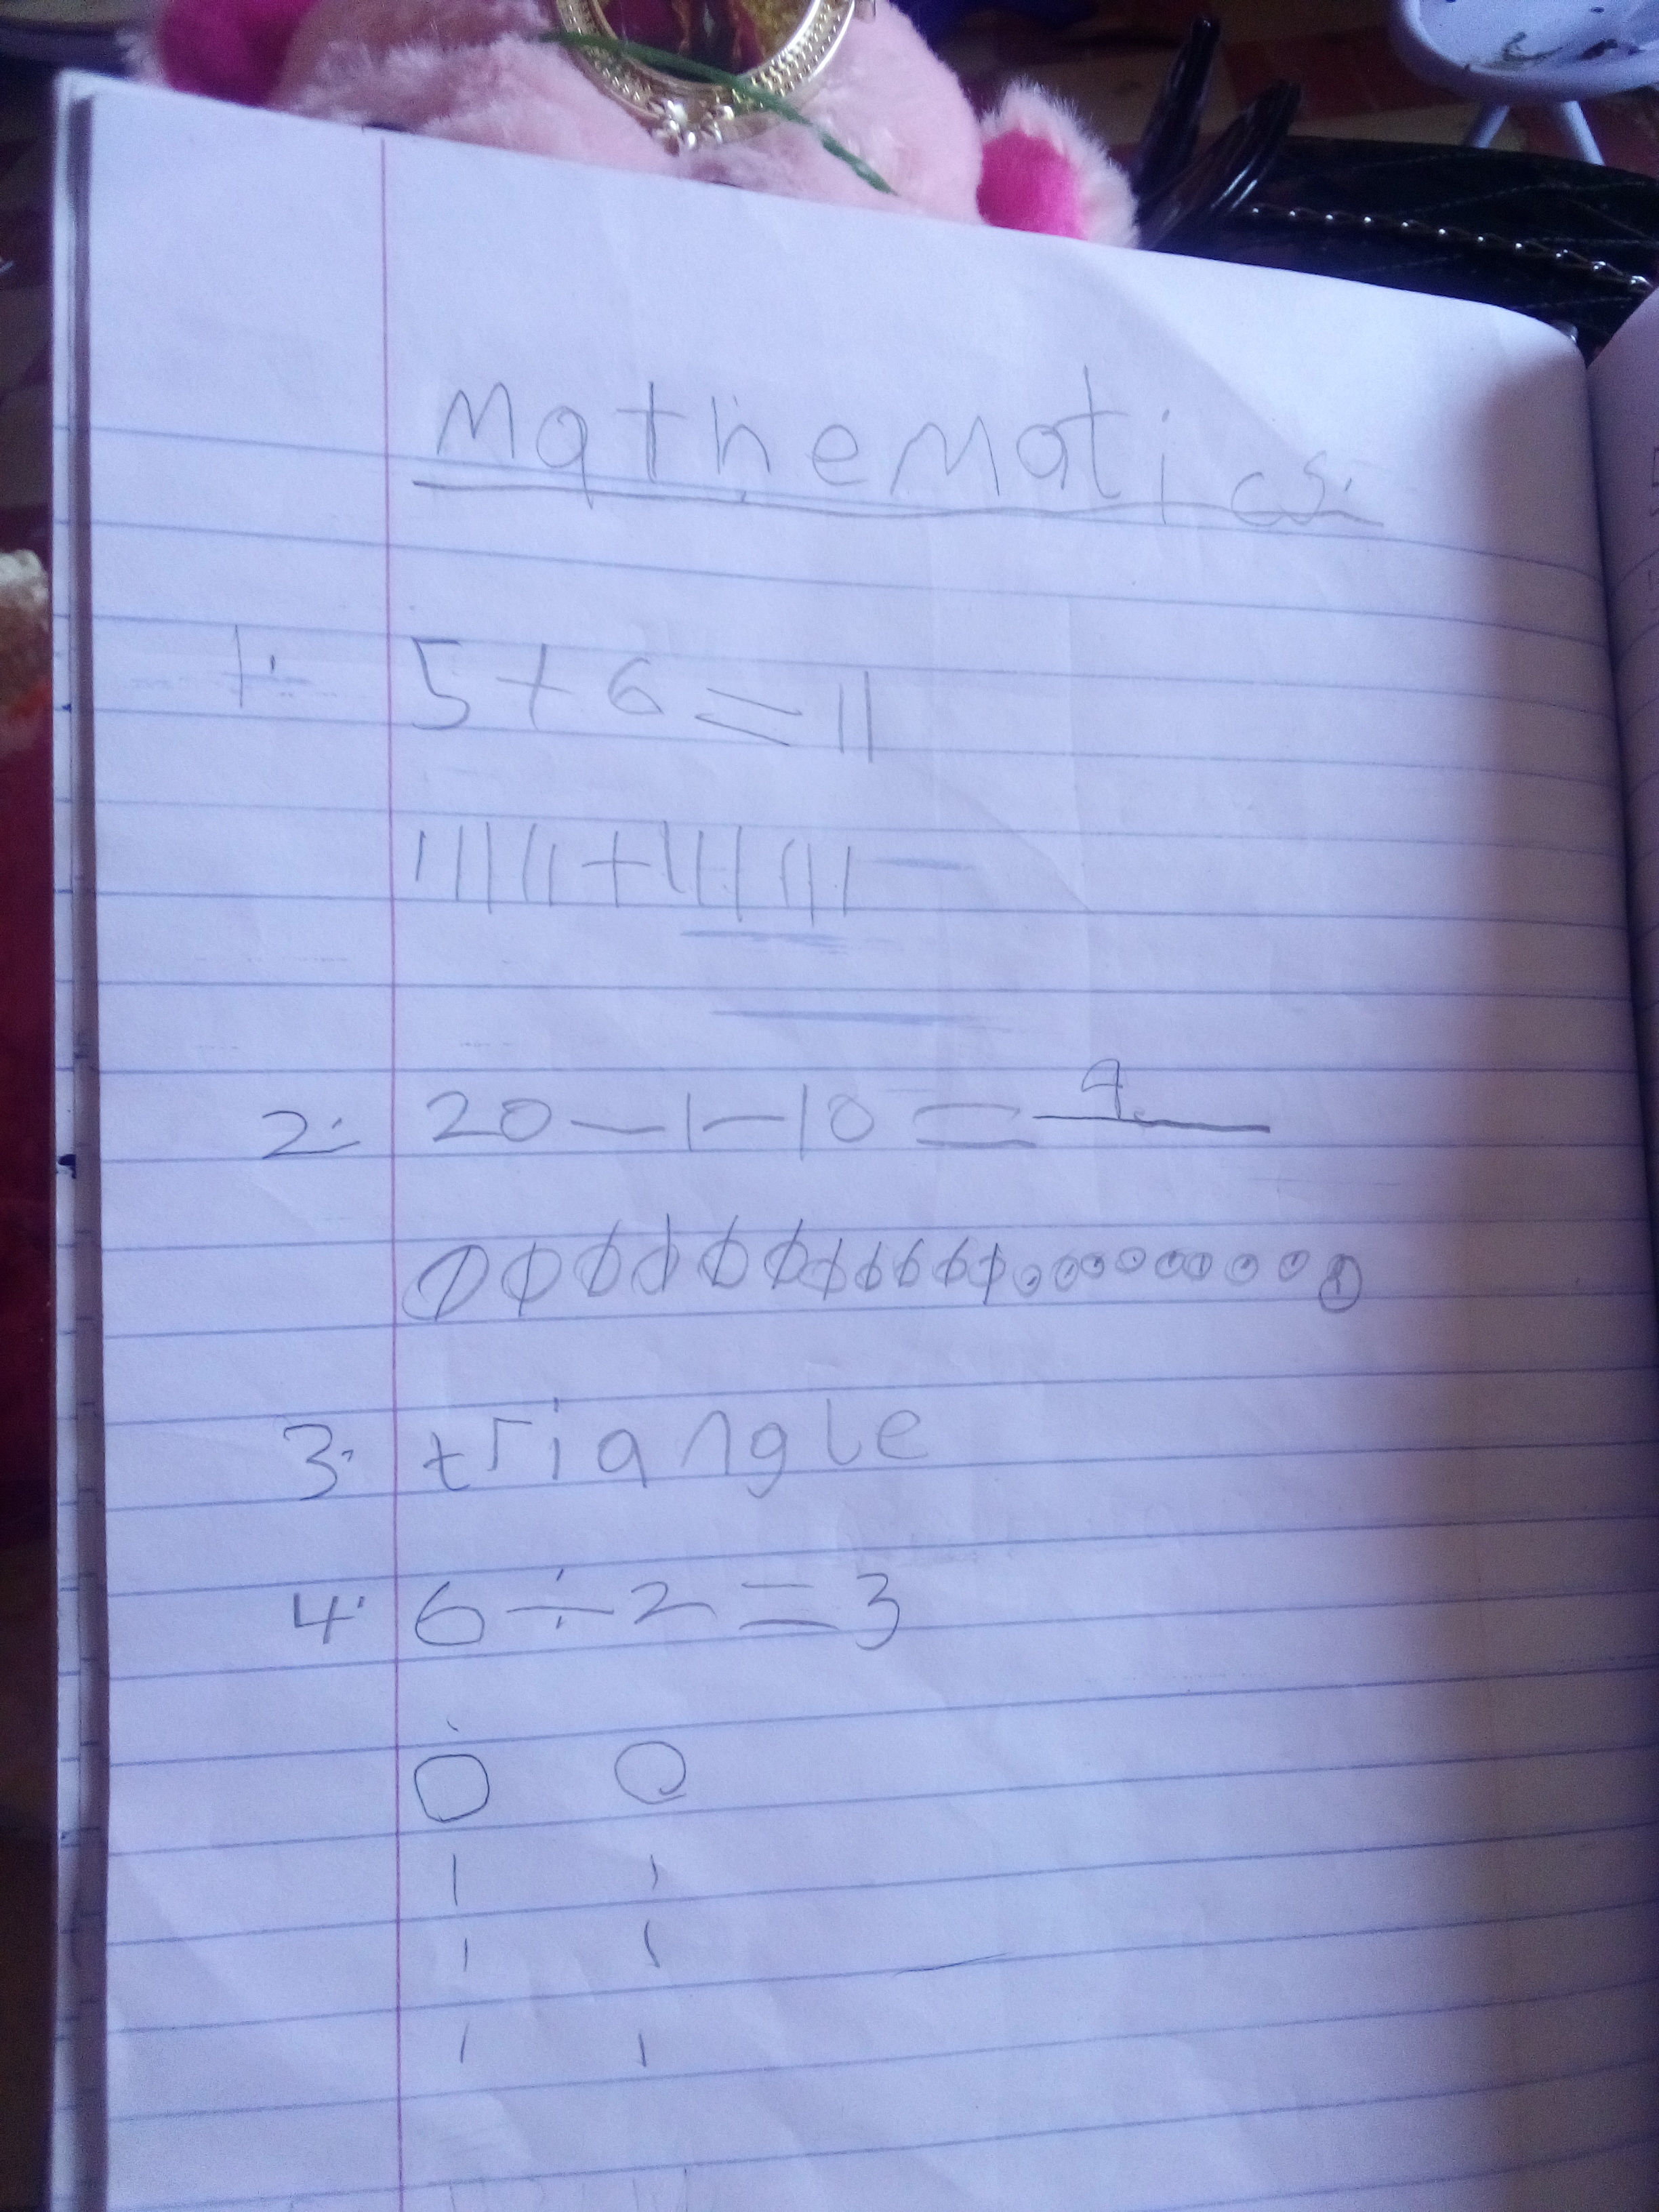 Mathematics.
1. 5 + 6 = 11
||||| + ||||||
2. 20 - 1 - 10 = 9
3. triangle
4. 6 ÷ 2 = 3
O O
| |
| |
| |